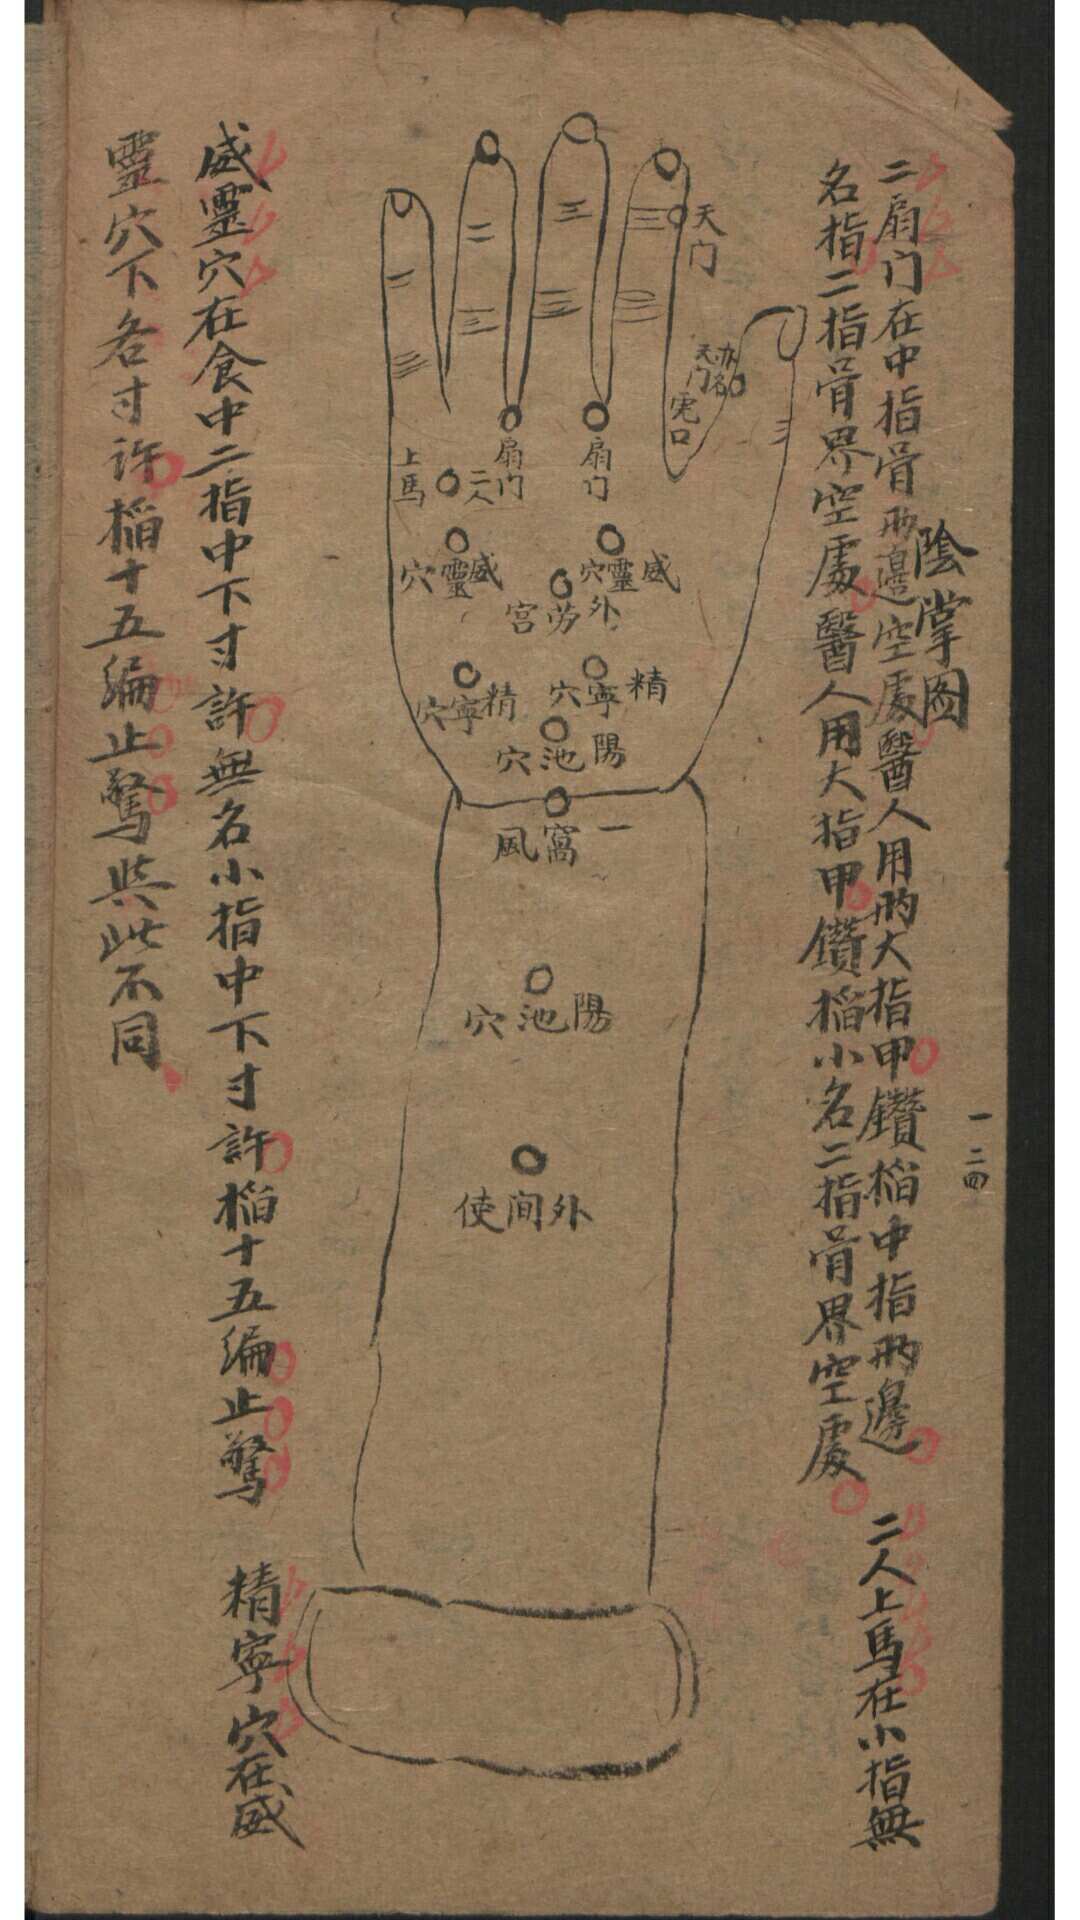 陰掌图
二扇门在中指骨兩邊空處醫人用兩大指甲鑽掐中指兩邊 二人上馬在小指無
名指二指骨界空處醫人用大指甲鑽掐小名二指骨界空處
一二四
天门
亦名
天门
虎口
扇门
扇门
二人
上馬
威靈穴
威靈穴
外劳宮
精寧穴
精寧穴
陽池穴
一窩風
陽池穴
外间使
二
三
三
一
三
三
三
三
威靈穴在食中二指中下寸許無名小指中下寸許掐十五编止驚 精寧穴在威
靈穴下各寸許掐十五编止驚與此不同